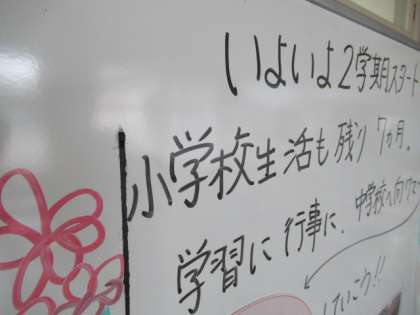 いよいよ2学期スタート
小学校生活も残り7ヵ月。
学習に行事に、中学校へ向けて
していこう!!